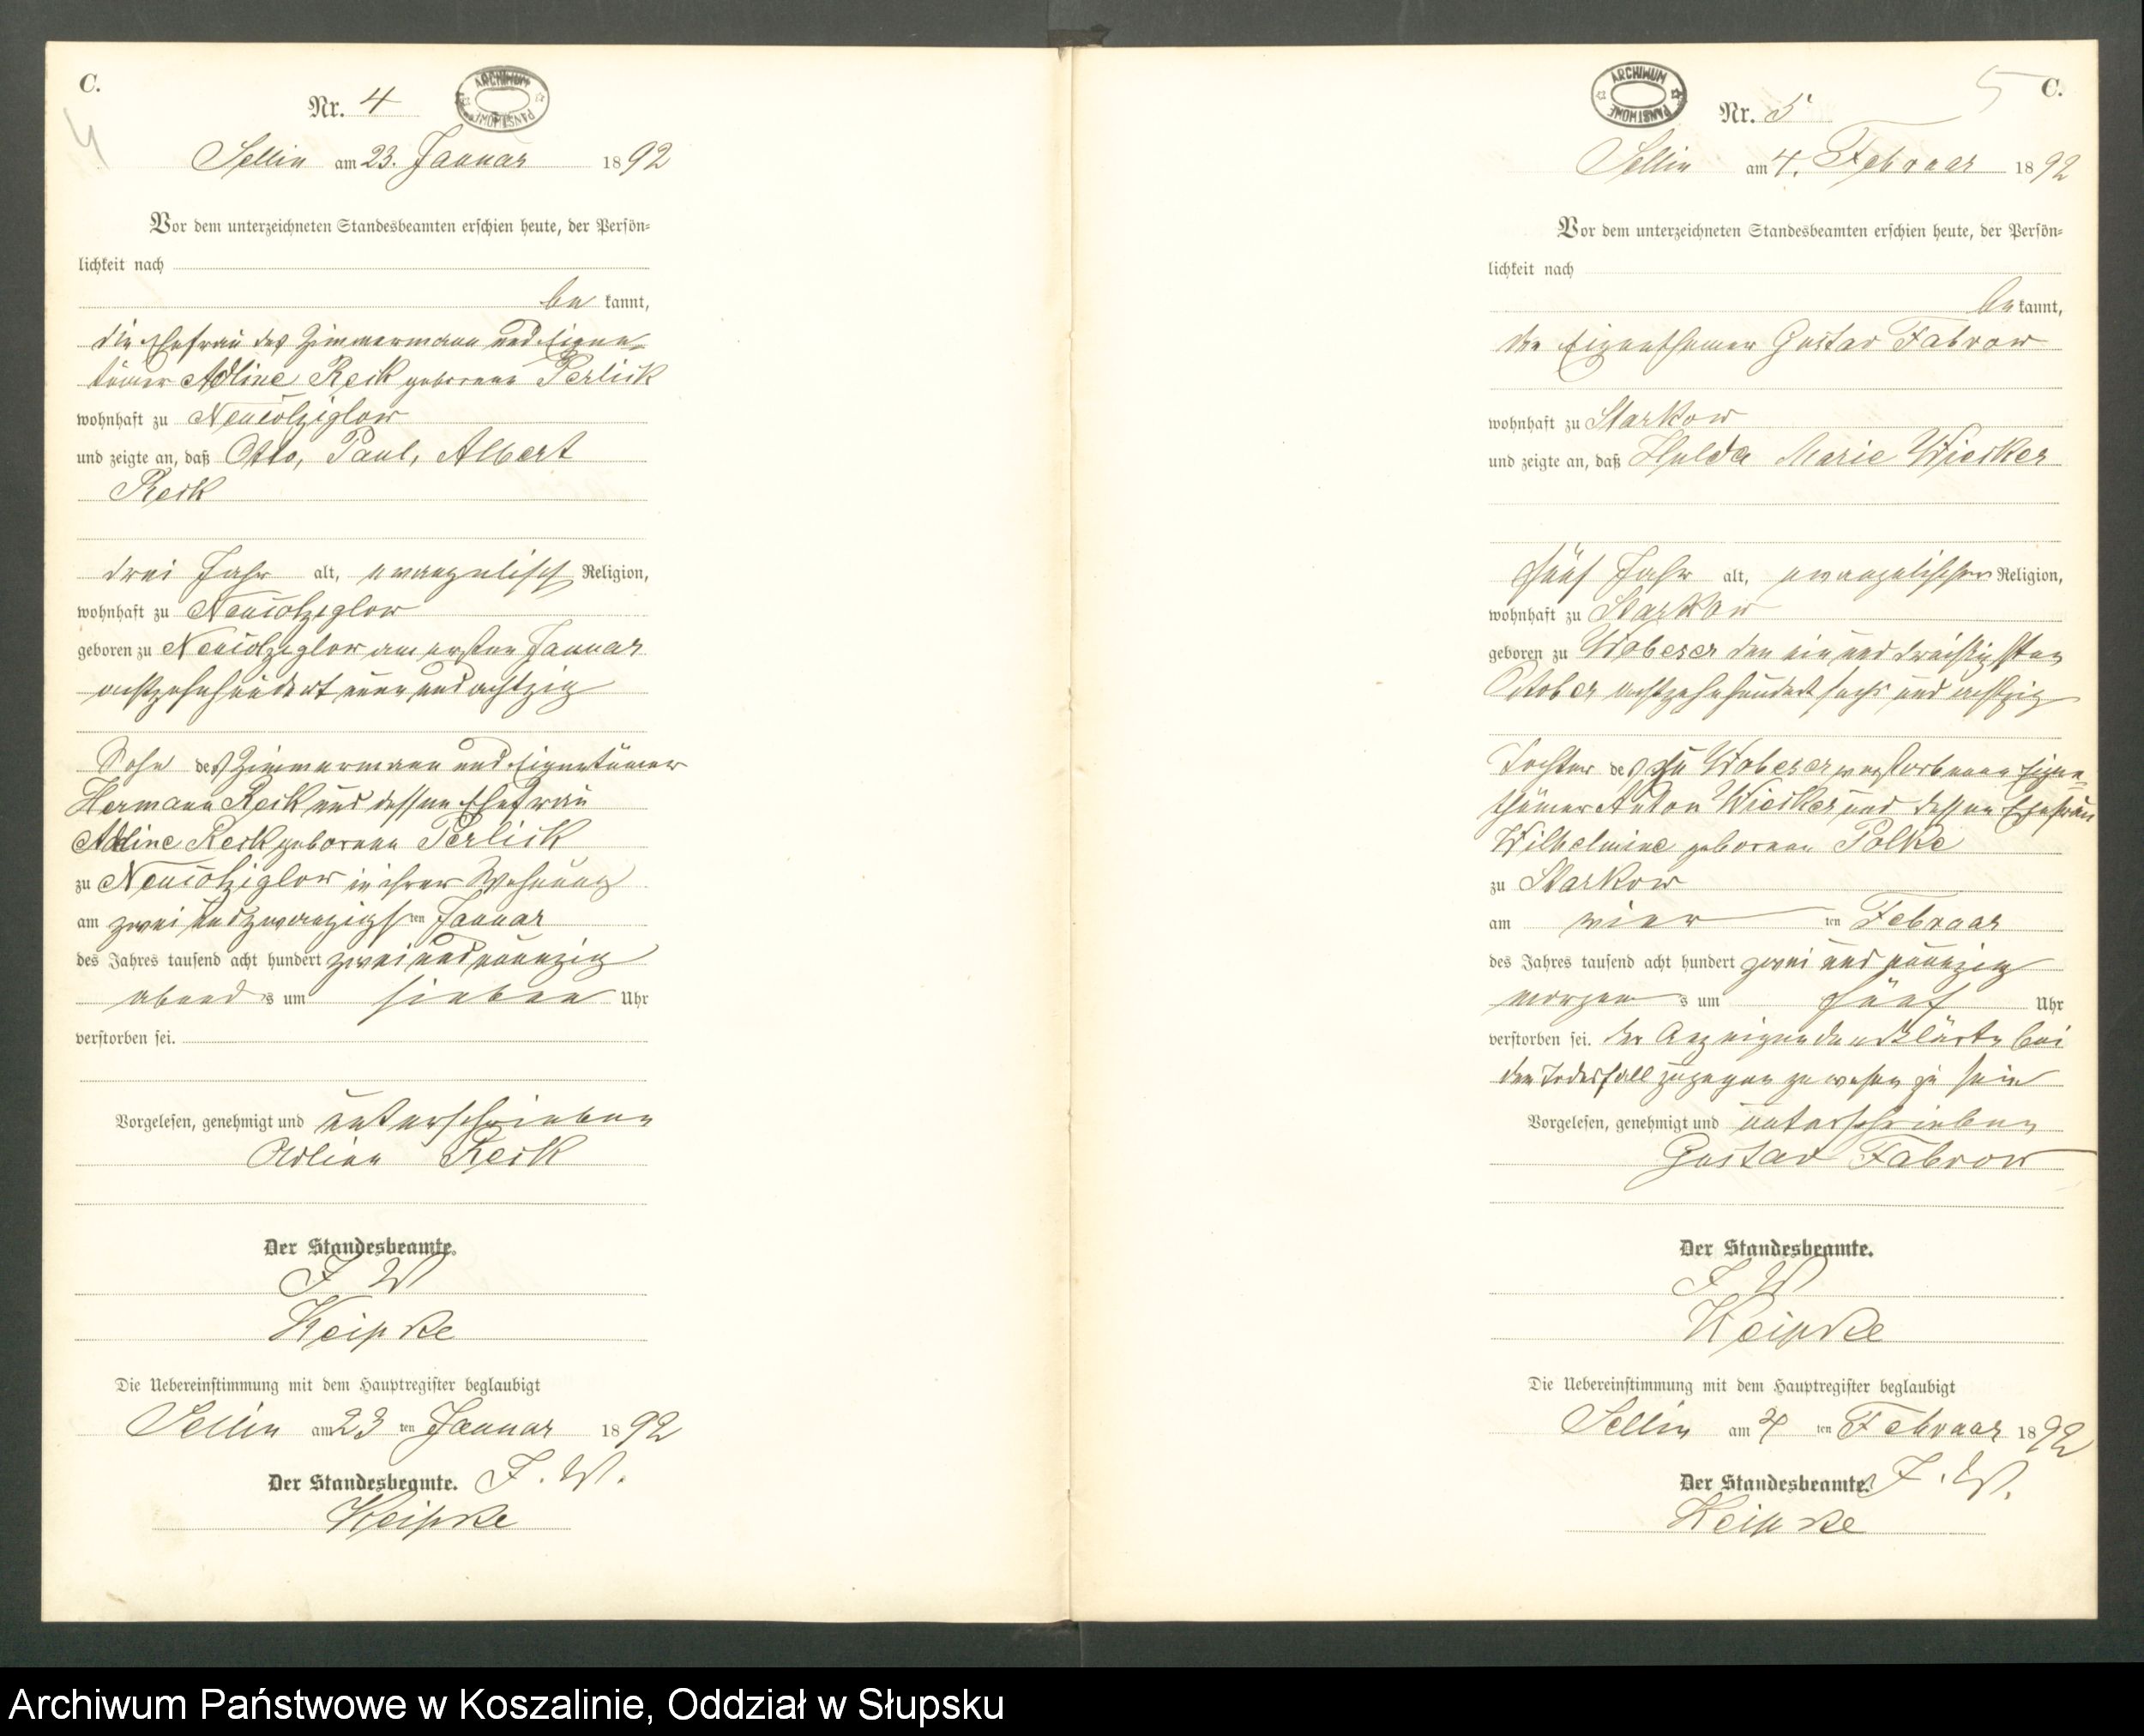 C.
4
Nr. 4
ARCHIWUM PAŃSTWOWE
Sellin am 23. Januar 1892
Vor dem unterzeichneten Standesbeamten erschien heute, der Persön-
lichkeit nach
be kannt,
die Ehefrau des Zimmermann und Eigen-
tümer Adline Reck geborene Perlick
wohnhaft zu Neucolziglow
und zeigte an, daß Otto, Paul, Albert
Reck
drei Jahr alt, evangelisch Religion,
wohnhaft zu Neucolziglow
geboren zu Neucolziglow am ersten Januar
achtzehnhundert neun und achtzig
Sohn des Zimmermann und Eigentümer
Hermann Reck und dessen Ehefrau
Adline Reck geborene Perlick
zu Neucolziglow in ihrer Wohnung
am zwei und zwanzigs ten Januar
des Jahres tausend acht hundert zwei und neunzig
abend s um sieben Uhr
verstorben sei.
Vorgelesen, genehmigt und unterschrieben
Adline Reck
Der Standesbeamte.
J W
Keipke
Die Uebereinstimmung mit dem Hauptregister beglaubigt
Sellin am 23 ten Januar 1892
Der Standesbeamte. J. W.
Keipke
5 C.
ARCHIWUM PAŃSTWOWE
Nr. 5
Sellin am 4. Februar 1892
Vor dem unterzeichneten Standesbeamten erschien heute, der Persön-
lichkeit nach
be kannt,
der Eigenthümer Gustav Fabrow
wohnhaft zu Starkow
und zeigte an, daß Hulda Marie Wiecker
fünf Jahr alt, evangelischer Religion,
wohnhaft zu Starkow
geboren zu Wobeser den ein und dreißigsten
October achtzehnhundert sechs und achtzig
Tochter des zu Wobeser verstorbenen Eigen-
thümer Anton Wiecker und dessen Ehefrau
Wilhelmine geborene Polke
zu Starkow
am vier ten Februar
des Jahres tausend acht hundert zwei und neunzig
morgen s um fünf Uhr
verstorben sei. Der Anzeigende erklärte bei
dem Todesfall zugegen gewesen zu sein
Vorgelesen, genehmigt und unterschrieben
Gustav Fabrow
Der Standesbeamte.
J W
Keipke
Die Uebereinstimmung mit dem Hauptregister beglaubigt
Sellin am 4 ten Februar 1892
Der Standesbeamte. J. W.
Keipke
Archiwum Państwowe w Koszalinie, Oddział w Słupsku